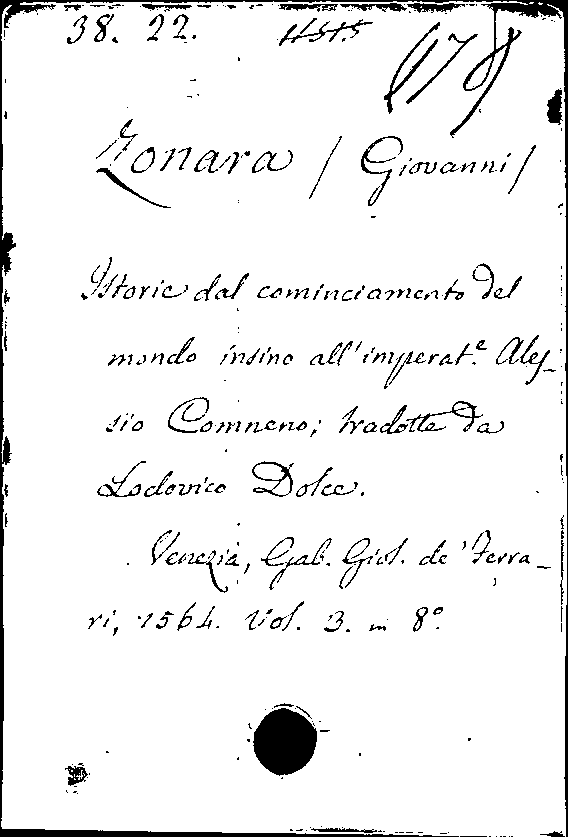 38. 22.
(178)
Zonara / Giovanni /
Istorie dal cominciamento del
mondo insino all'imperat.e Ales-
sio Comneno; tradotte da
Lodovico Dolce.
Venezia, Gab. Giol. de' Ferra-
ri, 1564. Vol. 3. in 8°.